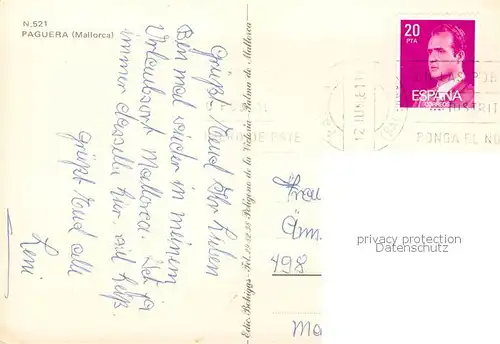 N.521
PAGUERA (Mallorca)
Grüß Euch Ihr Lieben
Bin mal wieder in meinem
Urlaubsort Mallorca. Ist ja
immer dasselbe hier, viel heiß.
Grüßt Euch all
Leni
Edic. Behiggs - Tel.
Polígono de la Victoria - Palma de Mallorca
20
PTA
ESPAÑA
CORREOS
PONGA EL NO
Frau
Am
498
privacy protection
Datenschutz